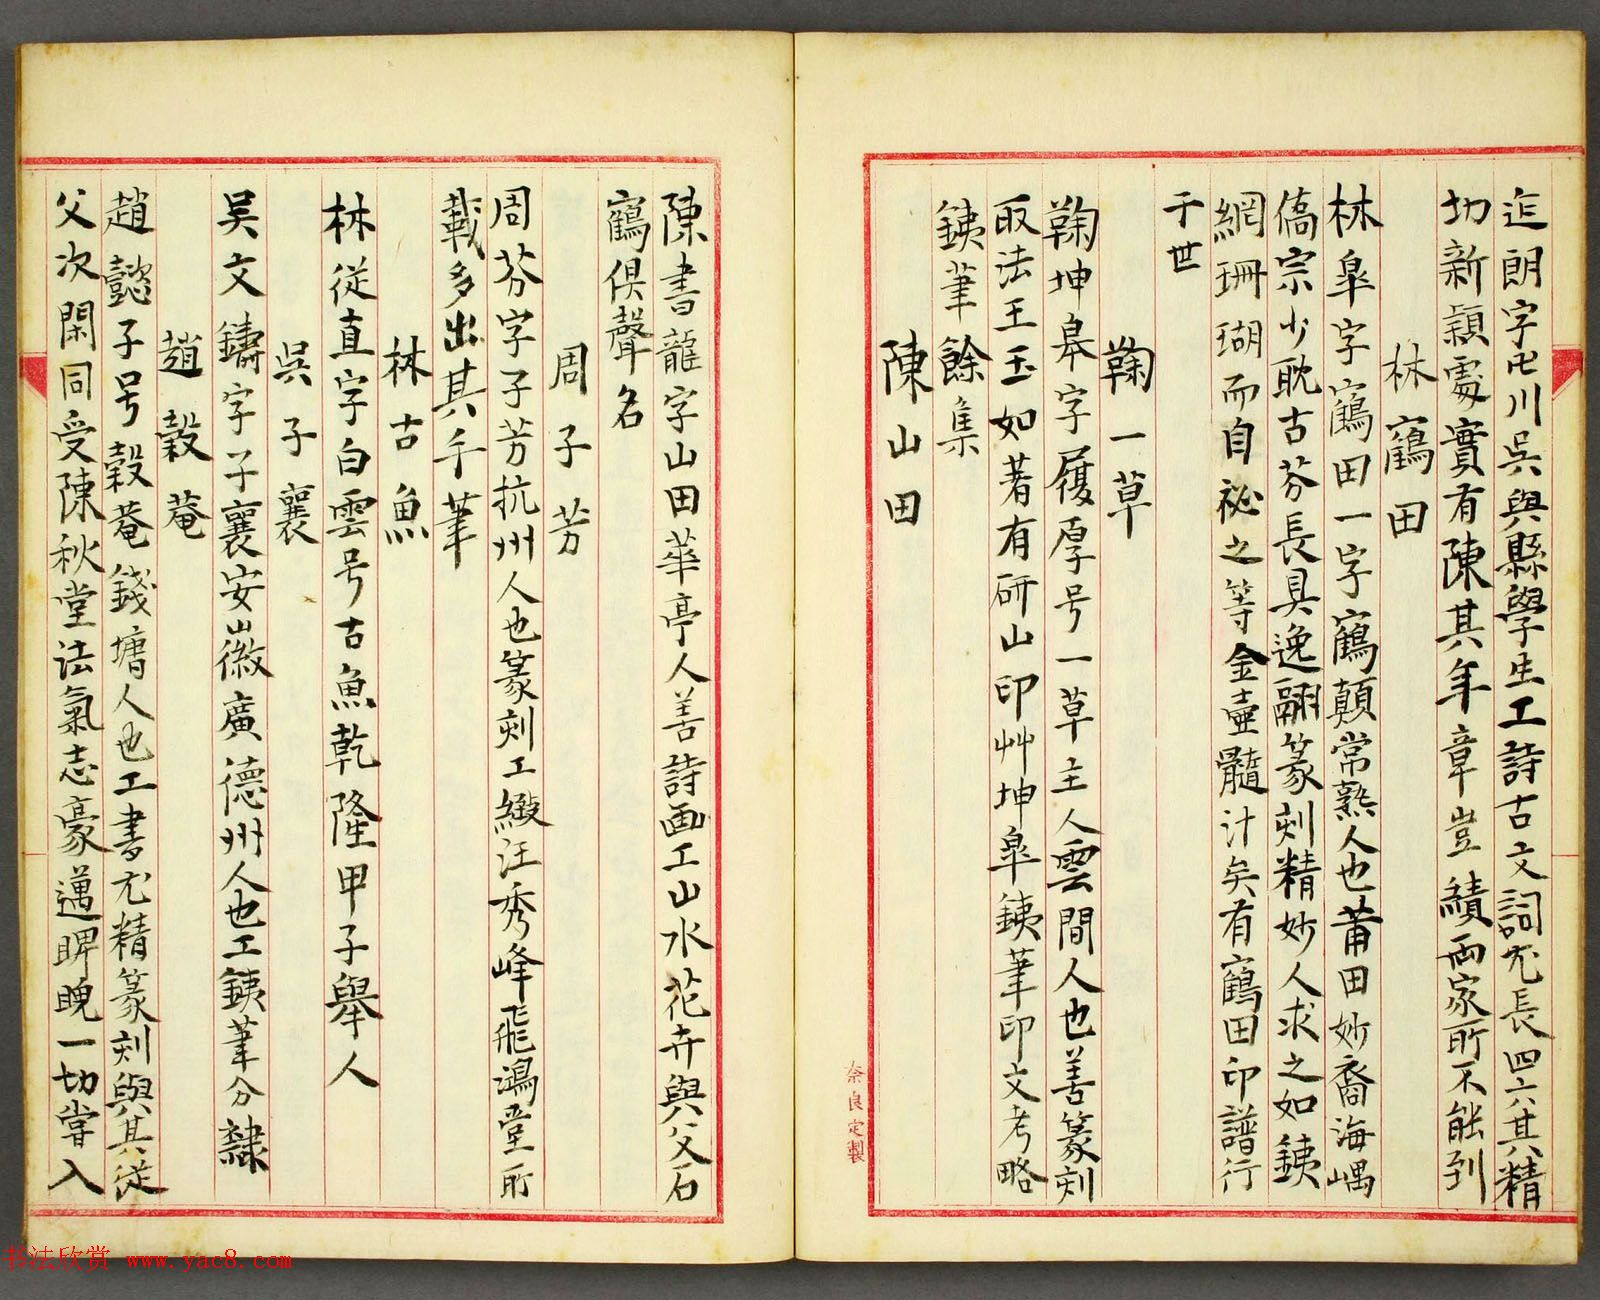 迮朗字卍川吳與縣學生工詩古文詞尤長四六其精
切新穎處實有陳其年章豈績兩家所不能到
林鶴田
林皐字鶴田一字鶴顛常熟人也莆田妙裔海嵎
僑宗少耽古芬長具逸翮篆刻精妙人求之如銕
網珊瑚而自祕之等金壺髓汁矣有鶴田印譜行
于世
鞠一草
鞠坤皋字履厚号一草主人雲間人也善篆刻
取法王玉如著有研山印艸坤皋銕筆印文考略
銕筆餘集
陳山田
陳書龍字山田華亭人善詩画工山水花卉與父石
鶴俱聲名
周子芳
周芬字子芳杭州人也篆刻工緻汪秀峰飛鴻堂所
載多出其手筆
林古魚
林従直字白雲号古魚乾隆甲子舉人
吳子襄
吴文鑄字子襄安徽廣德州人也工銕筆分隸
趙穀菴
趙懿子号穀菴錢塘人也工書尤精篆刻與其従
父次閑同受陳秋堂法氣志豪邁睥睨一切嘗入
奈良定製
书法欣赏 www.yac8.com